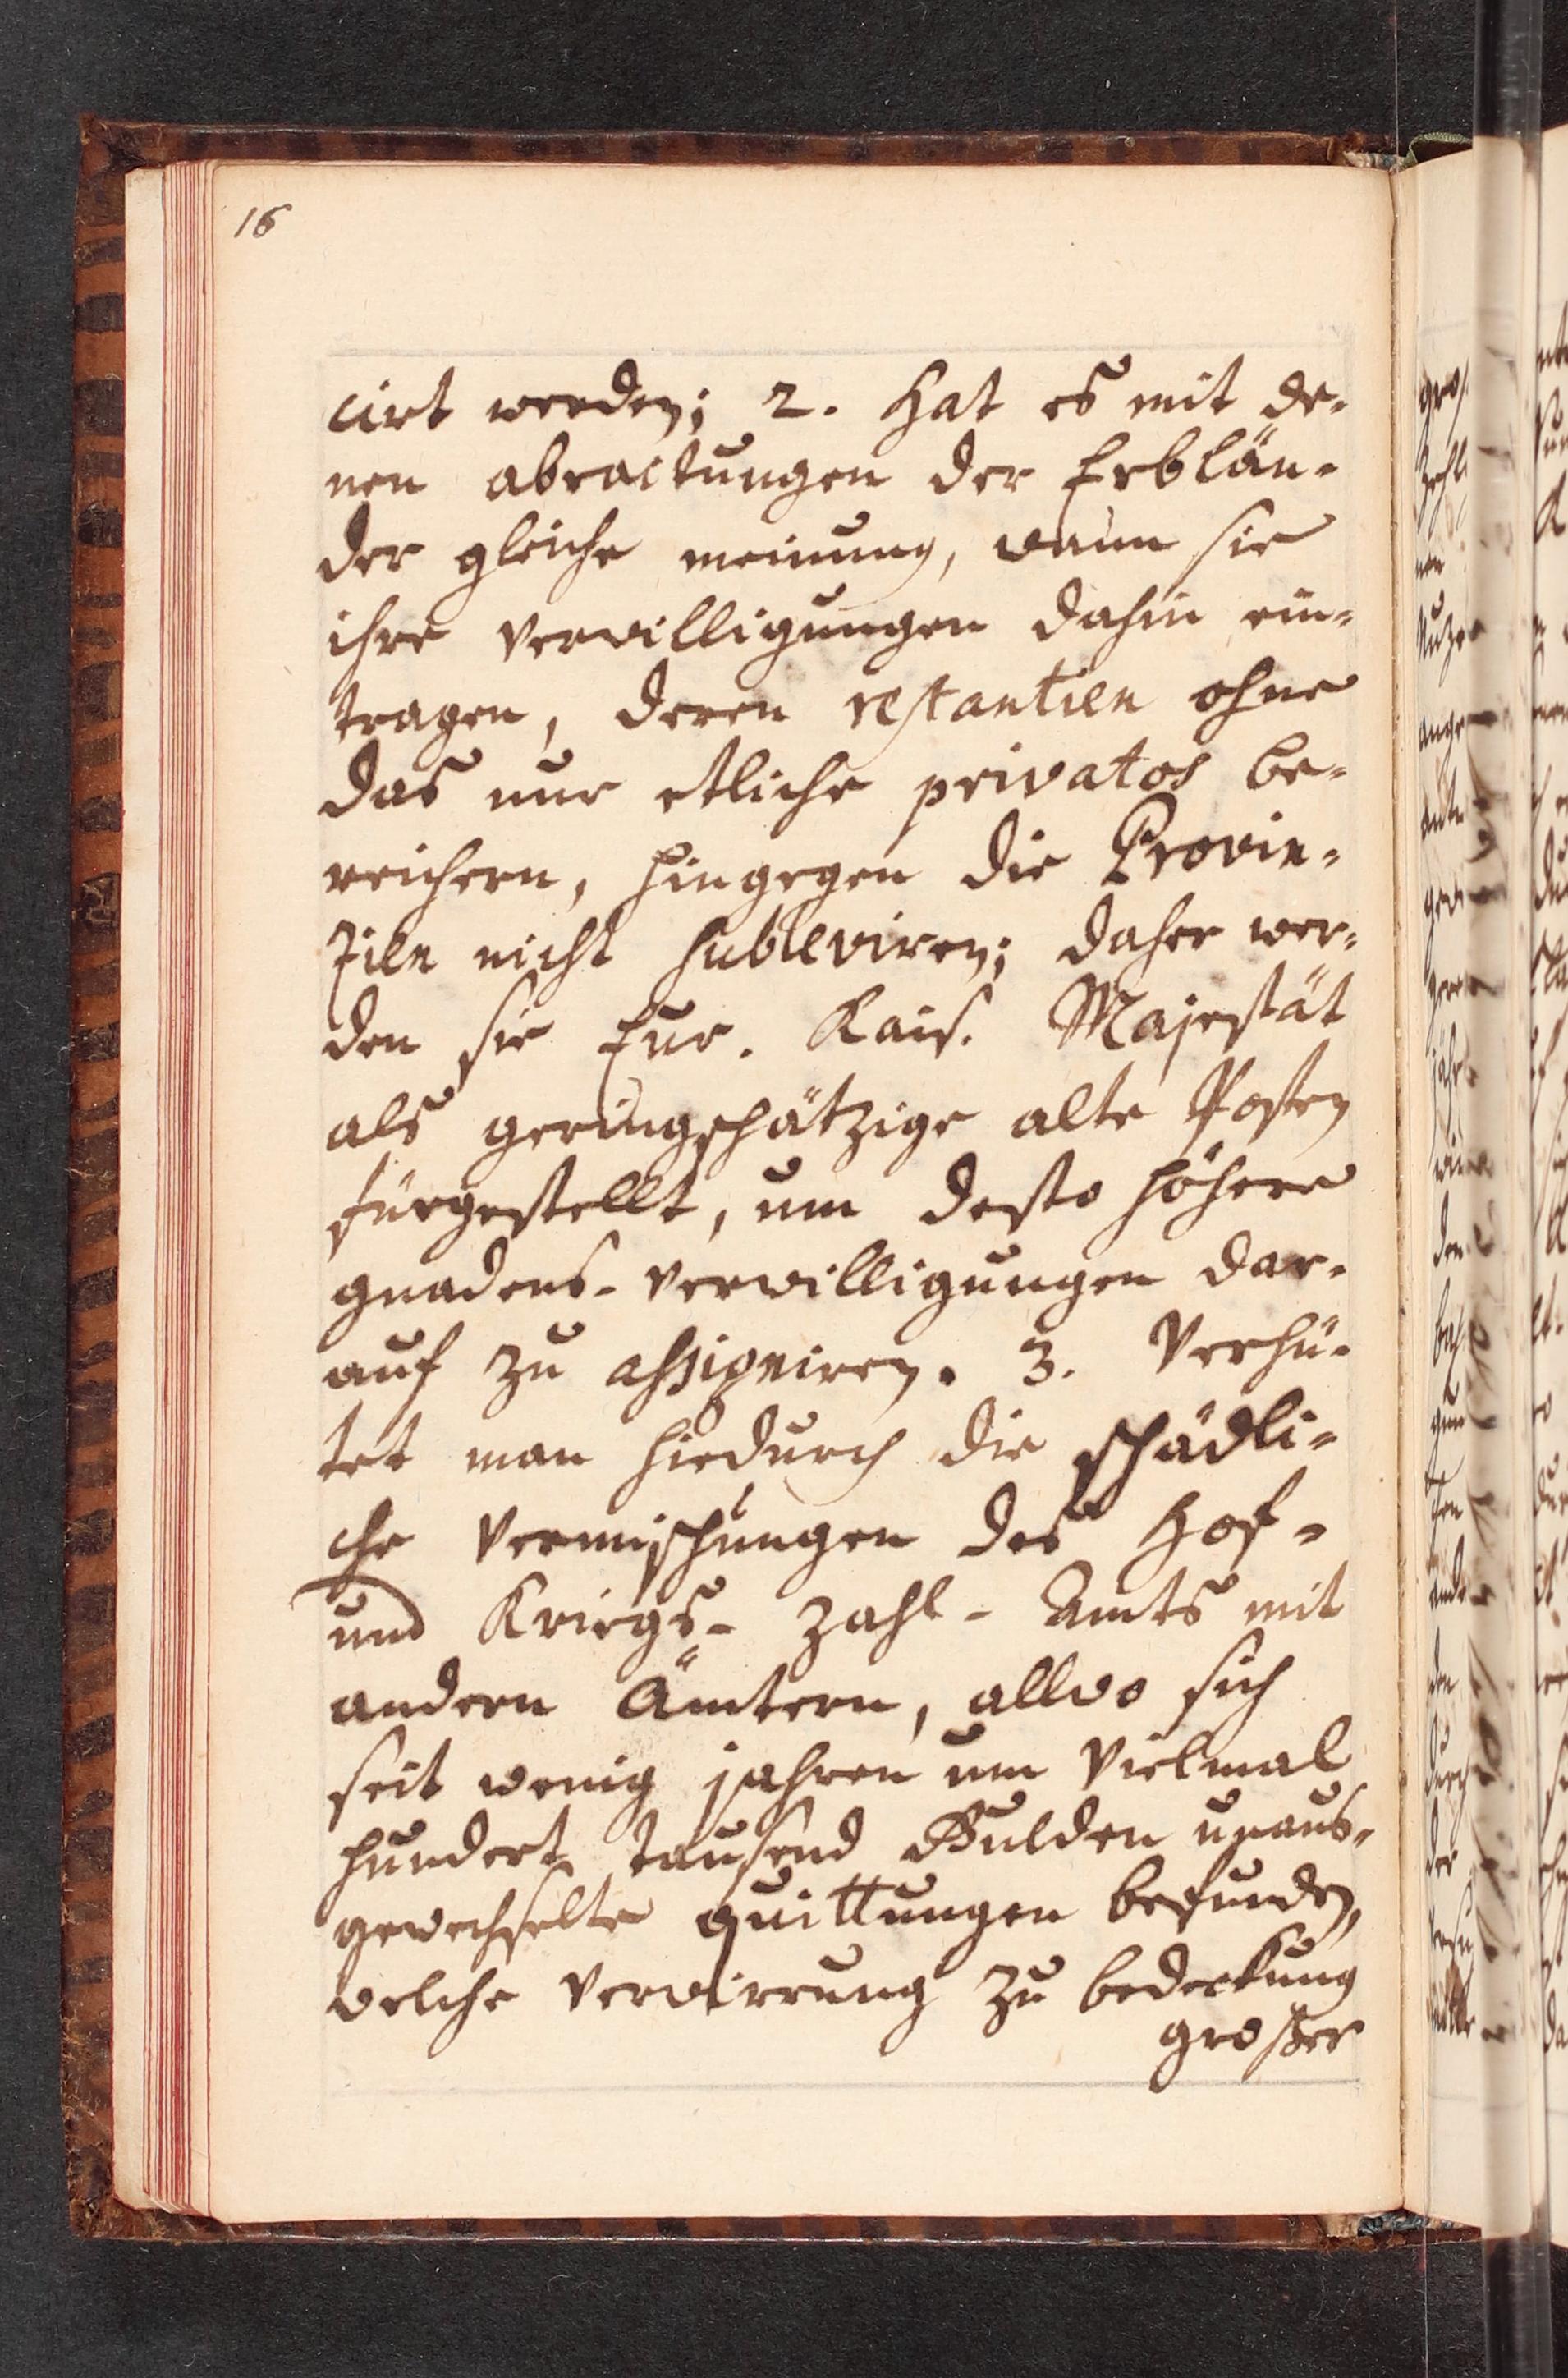 16
cirt werden; 2. Hat es mit de-
nen abraitungen der Erblän-
der gleiche meinung, wann sie
ihre verwilligungen dahin ein-
tragen, deren restantien ohne
das nur etliche privatos be-
reichern, hingegen die Provin-
zien nicht subleviren; daher wer-
den sie Eur. Kais. Majestät
als geringschätzige alte Posten
fürgestellt, um desto höhere
gnadens-verwilligungen dar-
auf zu assigniren. 3. Verhü-
tet man hiedurch die schädli-
che Vermischungen des Hof-
und Kriegs-Zahl-Amts mit
andern Ämtern, allwo sich
seit wenig jahren um vielmal
hundert tausend Gulden unaus-
gewechselte quittungen befunden,
welche verwirrung zu bedeckung
großer